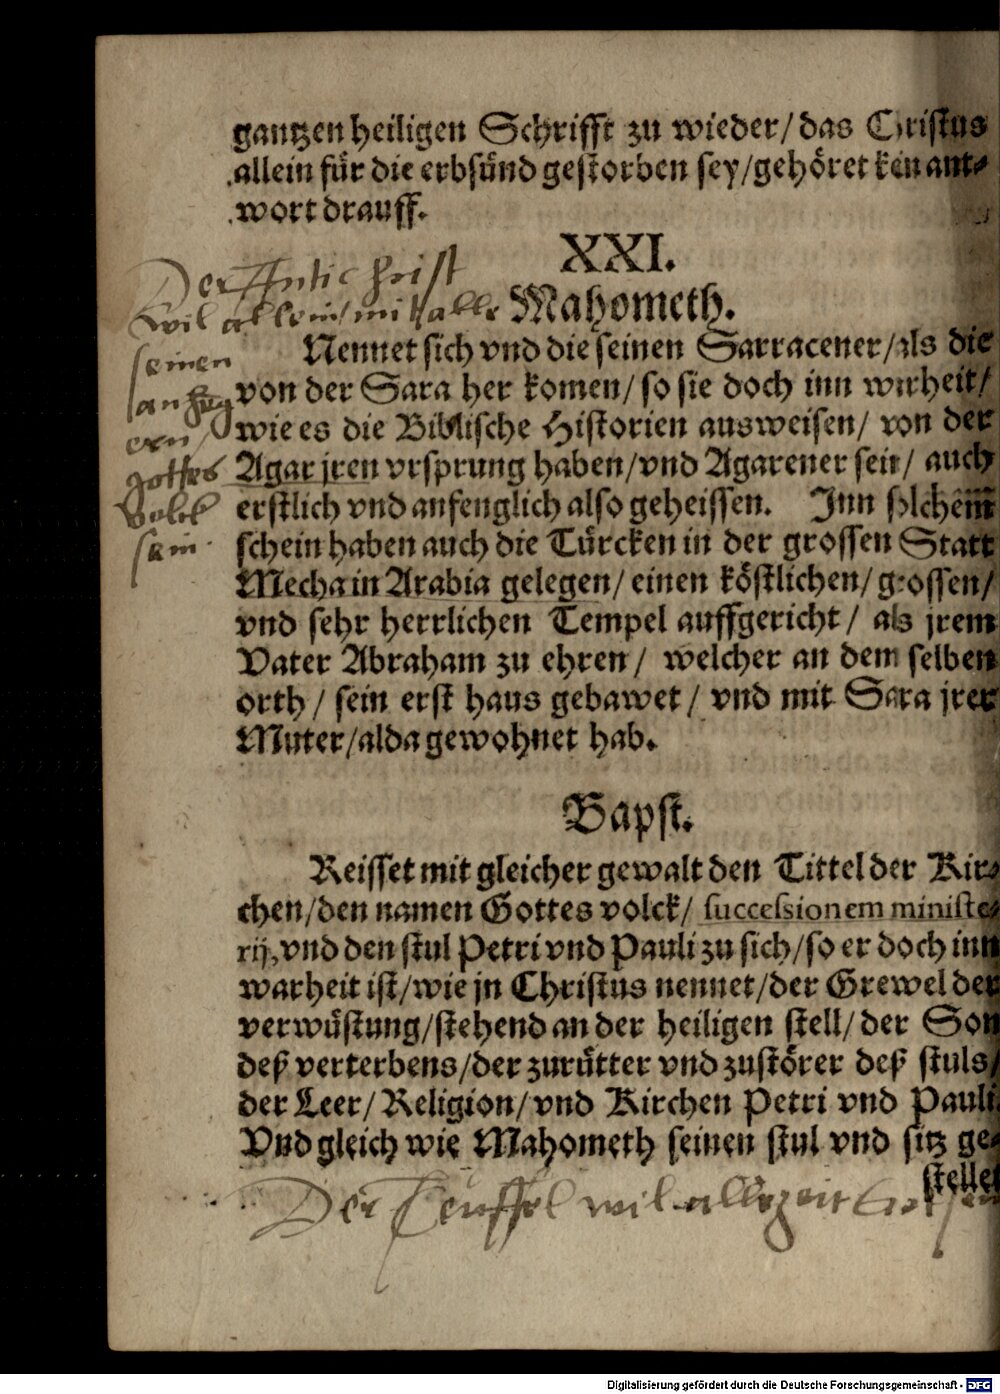 gantzen heiligen Schrifft zu wieder/ das Christus
allein für die erbsünd gestorben sey/ gehöret kein ant⸗
wort drauff.
XXI.
Der Antichrist
wil allein/ mit alle
seinen
gottes
Volck
sein
Mahometh.
Nennet sich vnd die seinen Sarracener/ als die
von der Sara her komen/ so sie doch inn warheit/
wie es die Biblische Historien ausweisen/ von der
Agar jren vrsprung haben/ vnd Agarener sein/ auch
erstlich vnd anfenglich also geheissen. Jnn solchem
schein haben auch die Türcken in der grossen Statt
Mecha in Arabia gelegen/ einen köstlichen/ grossen/
vnd sehr herrlichen Tempel auffgericht/ als jrem
Vater Abraham zu ehren/ welcher an dem selben
orth/ sein erst haus gebawet/ vnd mit Sara jrer
Muter/ alda gewohnet hab.
Bapst.
Reisset mit gleicher gewalt den Tittel der Kir⸗
chen/ den namen Gottes volck/ successionem ministe⸗
rij, vnd den stul Petri vnd Pauli zu sich/ so er doch inn
warheit ist/ wie jn Christus nennet/ der Grewel der
verwüstung/ stehend an der heiligen stell/ der Son
deß verterbens/ der zurütter vnd zustörer deß stuls/
der Leer/ Religion/ vnd Kirchen Petri vnd Pauli.
Vnd gleich wie Mahometh seinen stul vnd sitz ge⸗
stellet
Der Teuffel wil allezeit
Digitalisierung gefördert durch die Deutsche Forschungsgemeinschaft - DFG